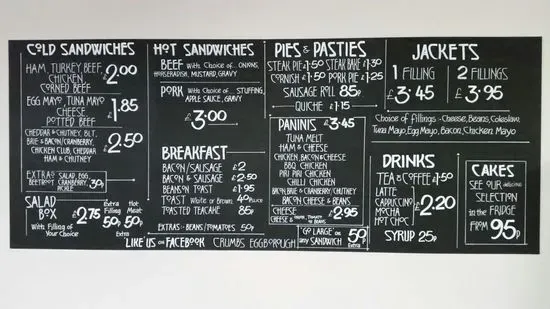 COLD SANDWICHES
HAM, TURKEY, BEEF,
CHICKEN
CORNED BEEF
£2.00
EGG MAYO, TUNA MAYO
CHEESE
POTTED BEEF
£1.85
CHEDDAR & CHUTNEY, BLT,
BRIE & BACON/CRANBERRY,
CHICKEN CLUB, CHEDDAR
HAM & CHUTNEY
£2.50
EXTRAS SALAD, EGG,
BEETROOT, CRANBERRY,
PICKLE
30p
SALAD
BOX
£2.75
Extra
Filling
50p
Hot
Meat
50p
Extra
With Filling of
Your Choice
HOT SANDWICHES
BEEF With Choice of.. ONIONS,
HORSERADISH, MUSTARD, GRAVY
PORK With Choice of.. STUFFING,
APPLE SAUCE, GRAVY
£3.00
BREAKFAST
BACON/SAUSAGE £2
BACON & SAUSAGE £2.50
BEANSON TOAST £1.95
TOAST White or Brown 40p SLICE
TOASTED TEACAKE 85p
EXTRAS - BEANS/TOMATOES 50p
LIKE US ON FACEBOOK CRUMBS EGGBOROUGH
PIES & PASTIES
STEAK PIE £1.50 STEAK BAKE £1.30
CORNISH £1.50 PORK PIE £1.25
SAUSAGE ROLL 85p
QUICHE £1.15
PANINIS £3.45
TUNA MELT
HAM & CHEESE
CHICKEN, BACON & CHEESE
BBQ CHICKEN
PIRI PIRI CHICKEN
CHILLI CHICKEN
BACON, BRIE & CRANBERRY, CHUTNEY
BACON CHEESE & BEANS
CHEESE
CHEESE & ONION, TOMATO OR BEANS
£2.95
'GO LARGE' ON
ANY SANDWICH
50p
EXTRA
JACKETS
1 FILLING
£3.45
2 FILLINGS
£3.95
Choice of Fillings - Cheese, Beans, Coleslaw,
Tuna Mayo, Egg Mayo, Bacon, Chicken Mayo
DRINKS
TEA & COFFEE £1.50
LATTE
CAPPUCCINO
MOCHA
HOT CHOC
£2.20
SYRUP 25p
CAKES
SEE OUR delicious
SELECTION
in the FRIDGE
FROM 95p